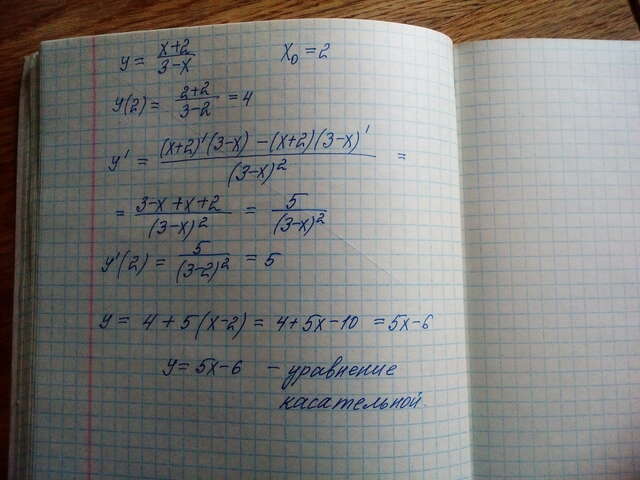 y = x+2/3-x    X₀ = 2
y(2) = 2+2/3-2 = 4
y' = (x+2)'(3-x) - (x+2)(3-x)'/(3-x)² =
= 3-x+x+2/(3-x)² = 5/(3-x)²
y'(2) = 5/(3-2)² = 5
y = 4 + 5(x-2) = 4+5x-10 = 5x-6
y = 5x-6 - уравнение
касательной.